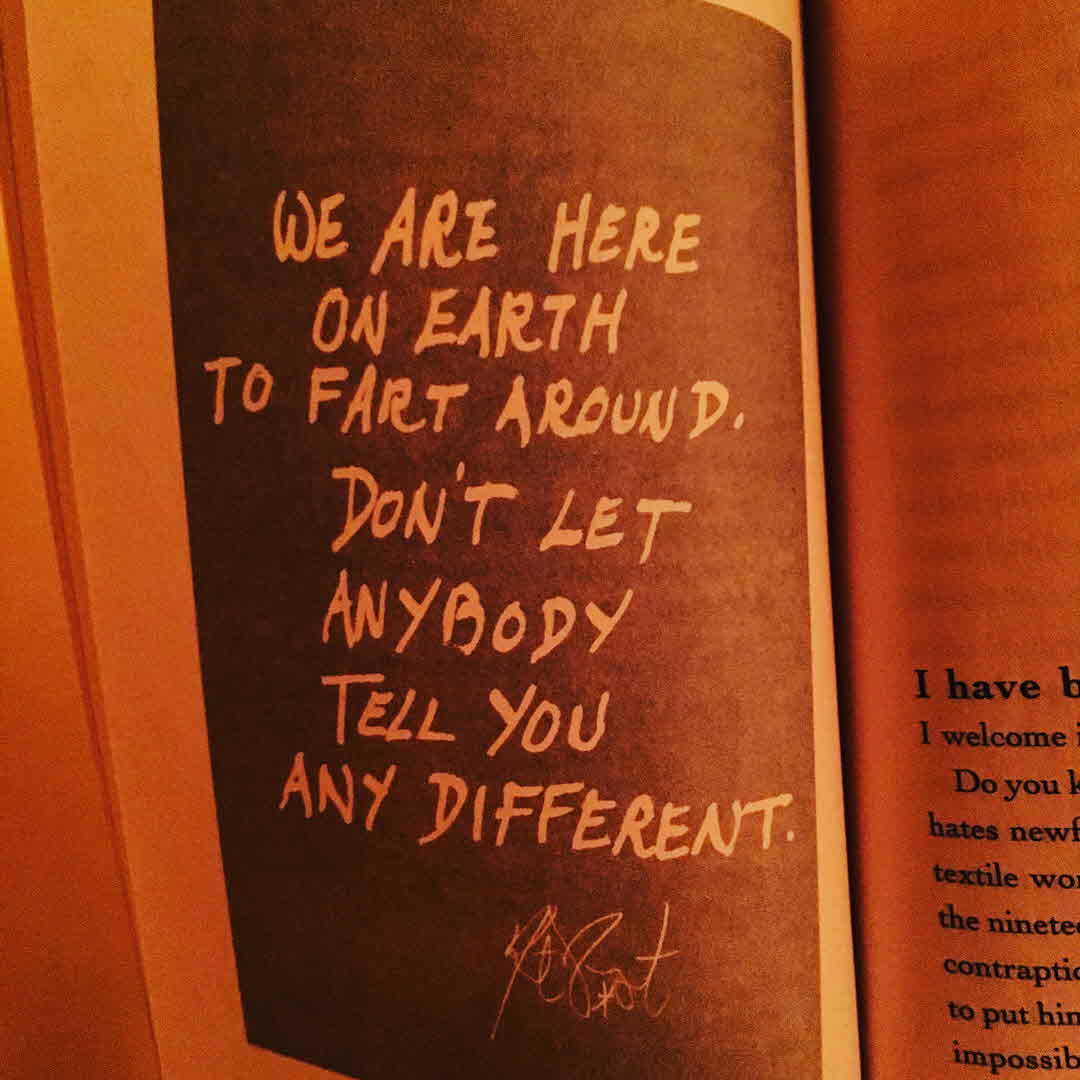 WE ARE HERE
ON EARTH
TO FART AROUND.
DON'T LET
ANYBODY
TELL YOU
ANY DIFFERENT.
I have b
I welcome i
Do you k
hates newf
textile wor
the ninetee
contraptio
to put him
impossib